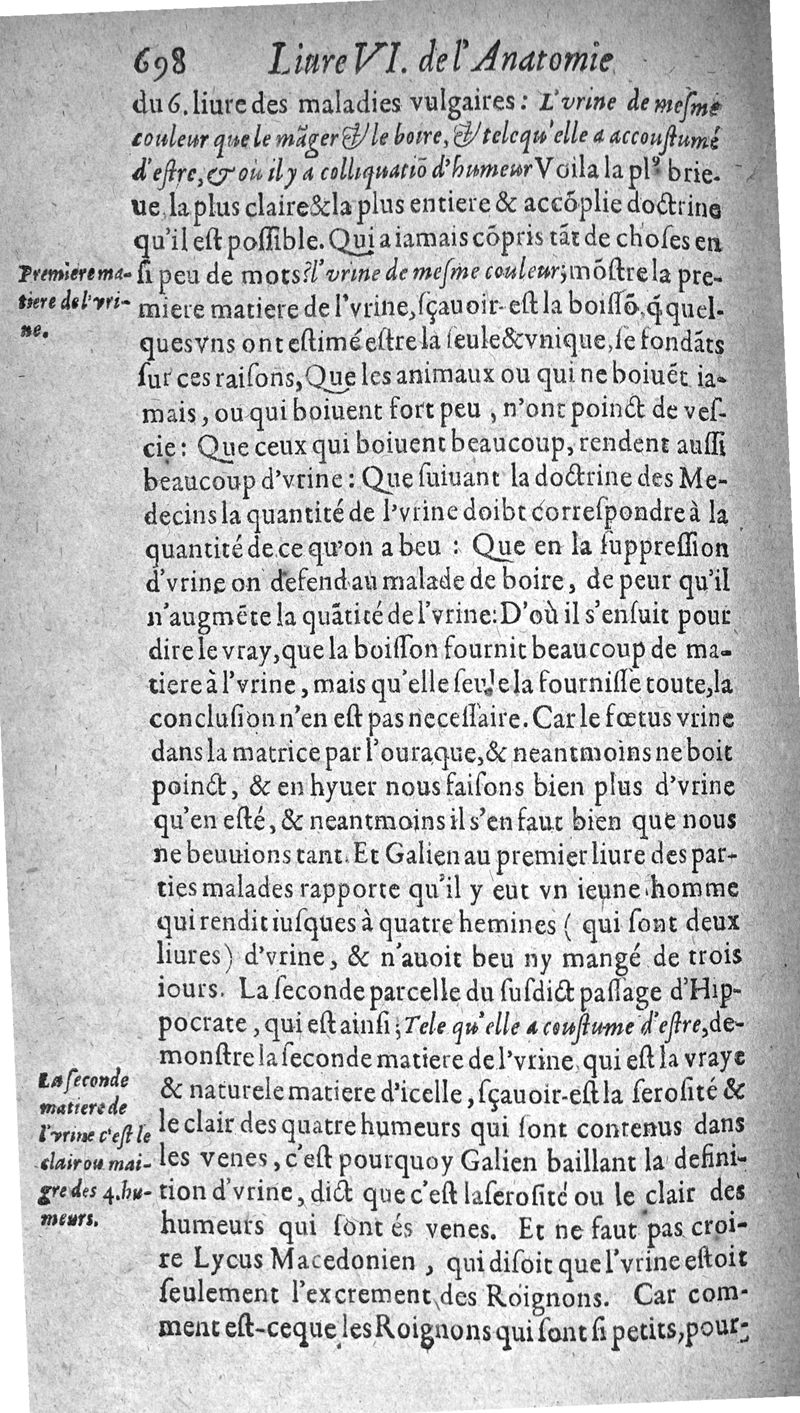 698 Liure VI. de l'Anatomie
du 6. liure des maladies vulgaires : L'vrine de meſme
couleur que le mãger & le boire, & tele qu'elle a accouſtumé
d'eſtre, & où il y a colliquatiõ d'humeur Voila la pl⁹ brie-
ue, la plus claire & la plus entiere & accõplie doctrine
qu'il eſt poſſible. Qui a iamais cõpris tãt de choſes en
ſi peu de mots? l'vrine de meſme couleur; mõſtre la pre-
miere matiere de l'vrine, ſçauoir-eſt la boiſſõ, q̃ quel-
ques vns ont eſtimé eſtre la ſeule & vnique, ſe fondãts
ſur ces raiſons, Que les animaux ou qui ne boiuẽt ia-
mais, ou qui boiuent fort peu, n'ont poinct de veſ-
cie : Que ceux qui boiuent beaucoup, rendent auſſi
beaucoup d'vrine : Que ſuiuant la doctrine des Me-
decins la quantité de l'vrine doibt correſpondre à la
quantité de ce qu'on a beu : Que en la ſuppreſſion
d'vrine on defend au malade de boire, de peur qu'il
n'augmẽte la quãtité de l'vrine: D'où il s'enſuit pour
dire le vray, que la boiſſon fournit beaucoup de ma-
tiere à l'vrine, mais qu'elle ſeule la fourniſſe toute, la
concluſion n'en eſt pas neceſſaire. Car le fœtus vrine
dans la matrice par l'ouraque, & neantmoins ne boit
poinct, & en hyuer nous faiſons bien plus d'vrine
qu'en eſté, & neantmoins il s'en faut bien que nous
ne beuuions tant. Et Galien au premier liure des par-
ties malades rapporte qu'il y eut vn ieune homme
qui rendit iuſques à quatre hemines ( qui ſont deux
liures) d'vrine, & n'auoit beu ny mangé de trois
iours. La ſeconde parcelle du ſuſdict paſſage d'Hip-
pocrate, qui eſt ainſi; Tele qu'elle a couſtume d'eſtre, de-
monſtre la ſeconde matiere de l'vrine, qui eſt la vraye
& naturele matiere d'icelle, ſçauoir-eſt la ſeroſité &
le clair des quatre humeurs qui ſont contenus dans
les venes, c'eſt pourquoy Galien baillant la defini-
tion d'vrine, dict que c'eſt la ſeroſité ou le clair des
humeurs qui ſont és venes. Et ne faut pas croi-
re Lycus Macedonien, qui diſoit que l'vrine eſtoit
ſeulement l'excrement des Roignons. Car com-
ment eſt-ce que les Roignons qui ſont ſi petits, pour-
Premiere ma-
tiere de l'vri-
ne.
La ſeconde
matiere de
l'vrine c'eſt le
clair ou mai-
gre des 4. hu-
meurs.